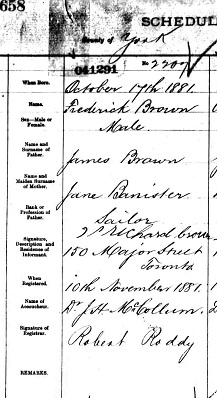 658
SCHEDUL
County of York
041291
No 2207
When Born.
October 17th 1881.
Name.
Frederick Brown
Sex—Male or Female.
Male
Name and Surname of Father.
James Brown
Name and Maiden Surname of Mother.
Jane Banister
Rank or Profession of Father.
Sailor
Signature, Description and Residence of Informant.
Richard Brown
150 Major Street
Toronto
When Registered.
10th November 1881.
Name of Accoucheur.
Dr J H McCollum.
Signature of Registrar.
Robert Roddy
REMARKS.